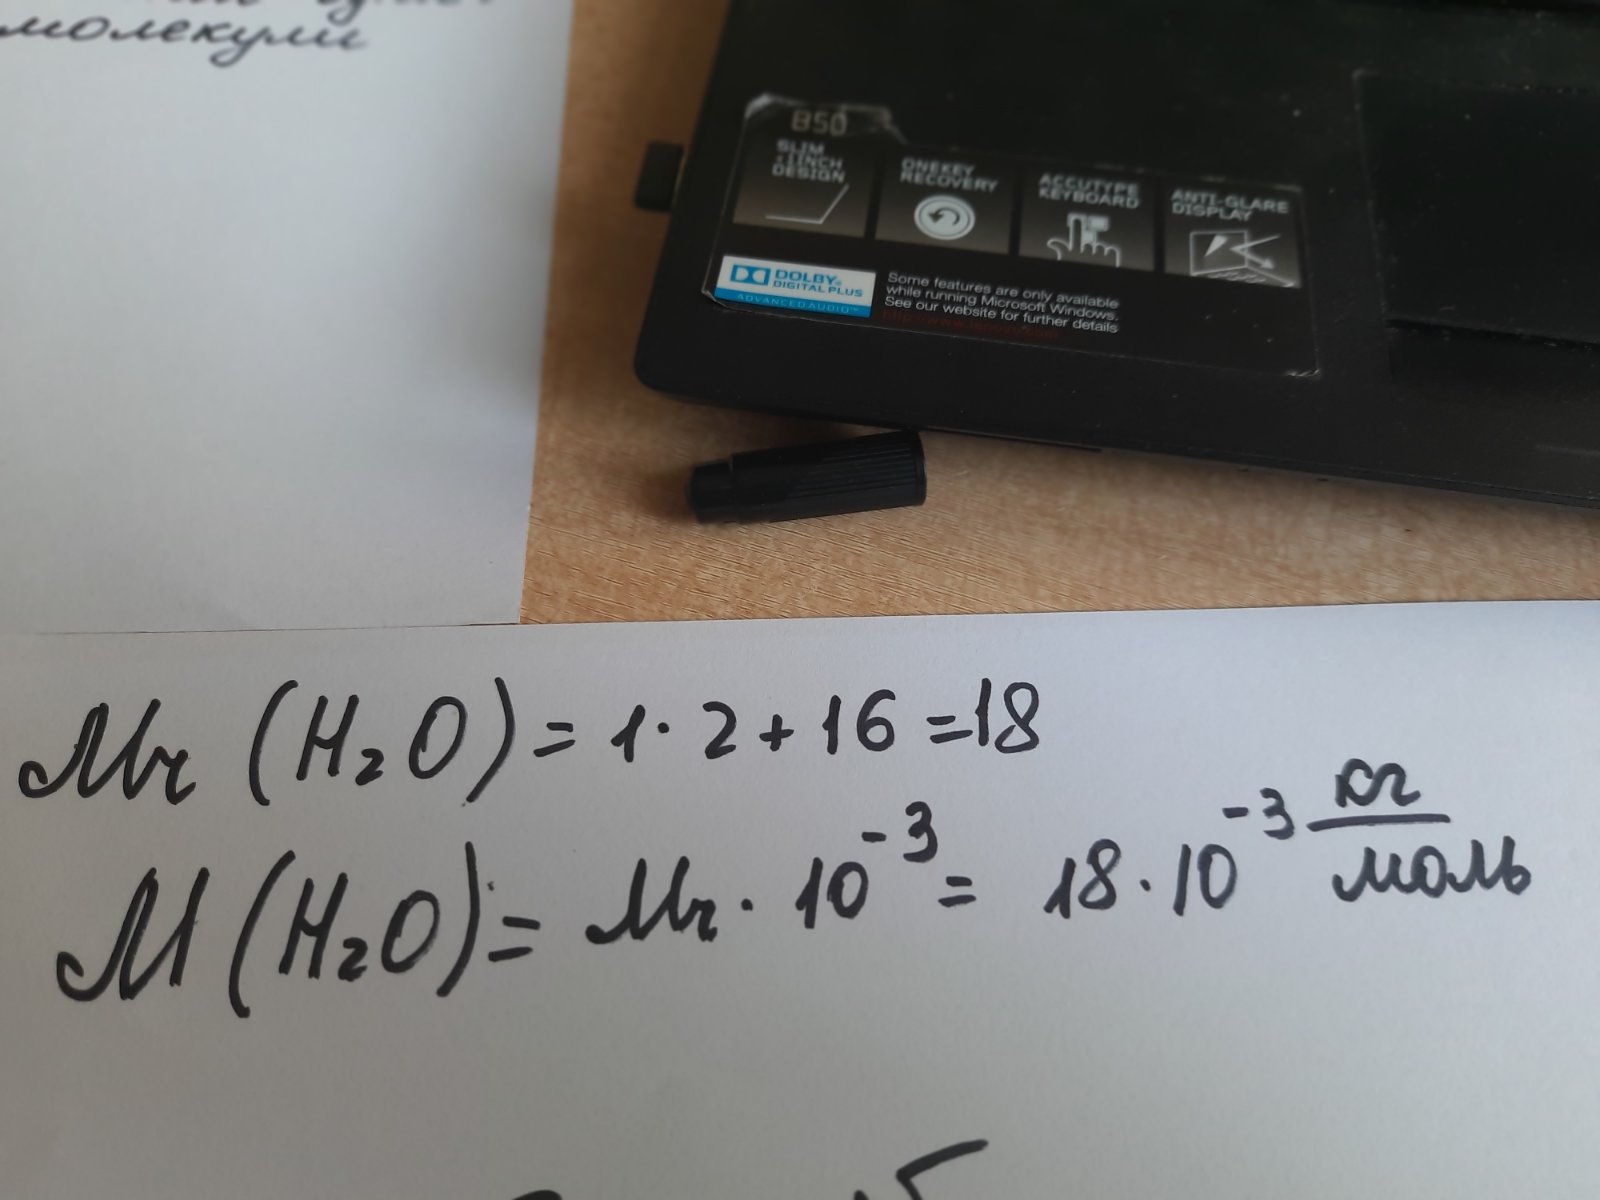 молекули
B50
SLIM
<1INCH
DESIGN
ONEKEY
RECOVERY
ACCUTYPE
KEYBOARD
ANTI-GLARE
DISPLAY
DOLBY®
DIGITAL PLUS
ADVANCED AUDIO™
Some features are only available
while running Microsoft Windows.
See our website for further details
http://www.lenovo.com
Mr (H₂O) = 1 · 2 + 16 = 18
M (H₂O) = Mr · 10⁻³ = 18 · 10⁻³ кг/моль